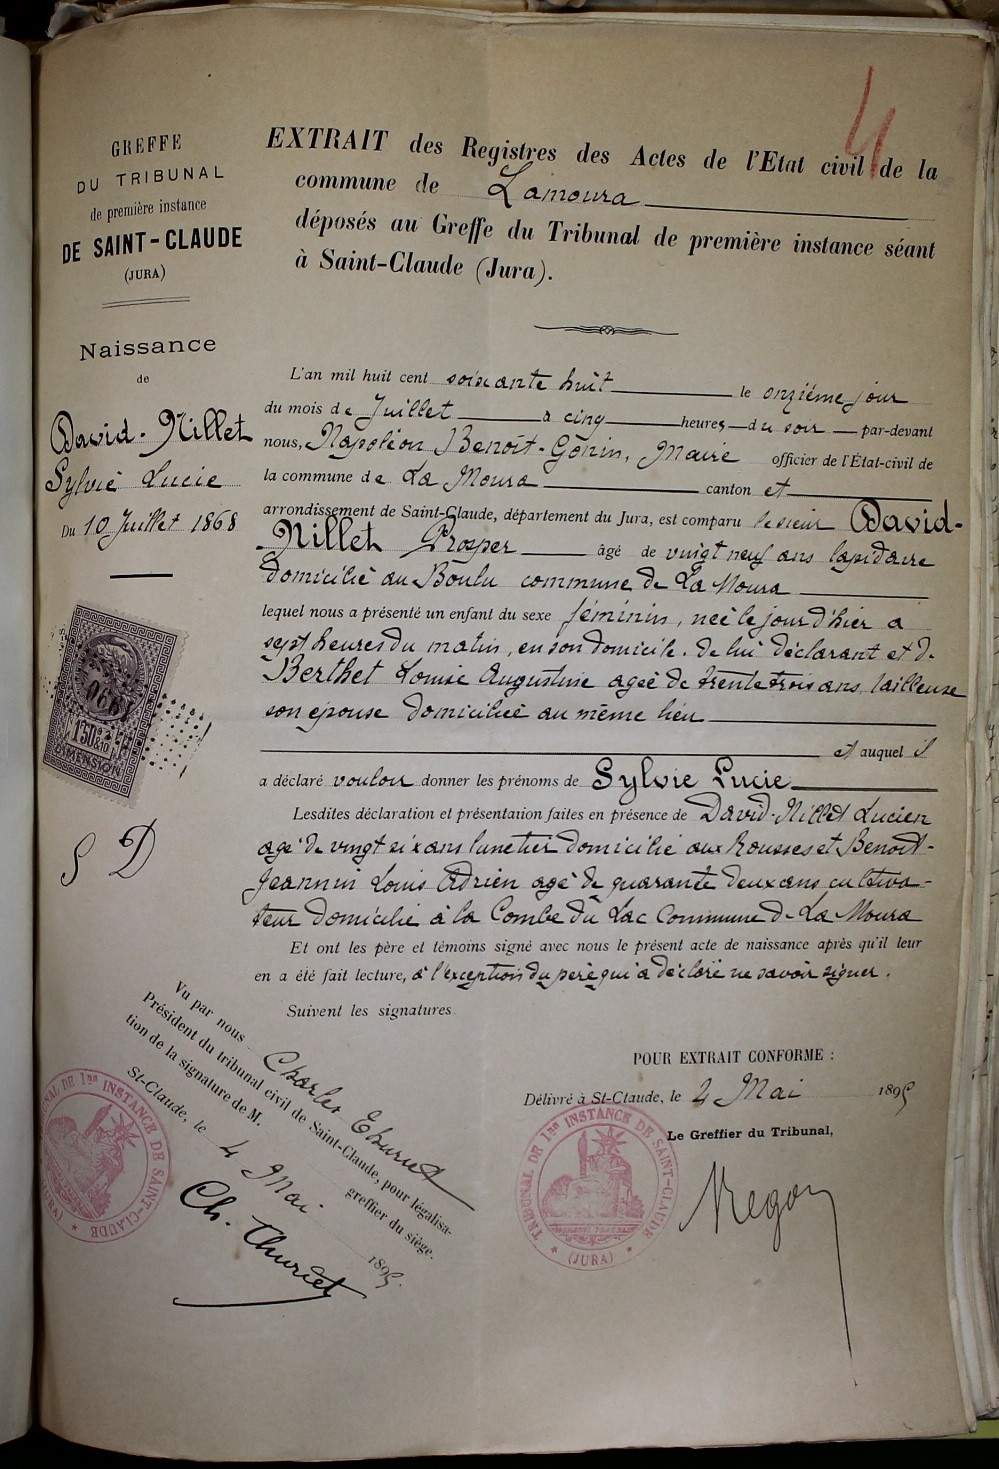 4
GREFFE
DU TRIBUNAL
de première instance
DE SAINT-CLAUDE
(JURA)
Naissance
de
David-Nillet
Sylvie Lucie
Du 10 Juillet 1868
EXTRAIT des Registres des Actes de l'Etat civil de la
commune de Lamoura
déposés au Greffe du Tribunal de première instance séant
à Saint-Claude (Jura).
L'an mil huit cent soixante huit le onzième jour
du mois de Juillet à cinq heures du soir par-devant
nous, Napoléon Benoît-Gonin, Maire officier de l'État-civil de
la commune de La Moura canton et
arrondissement de Saint-Claude, département du Jura, est comparu le sieur David-
Nillet Prosper âgé de vingt neuf ans lapidaire
domicilié au Boulu commune de La Moura
lequel nous a présenté un enfant du sexe féminin, née le jour d'hier à
sept heures du matin, en son domicile. de lui déclarant et de
Berthet Louise Augustine agée de trente trois ans, tailleuse
son épouse domiciliée au même lieu
et auquel il
a déclaré vouloir donner les prénoms de Sylvie Lucie
Lesdites déclaration et présentation faites en présence de David-Nillet Lucien
agé de vingt six ans lunetier domicilié aux Rousses et Benoit-
Jeannin Louis Adrien agé de quarante deux ans cultiva-
teur domicilié à la Combe du Lac Commune de La Moura
Et ont les père et témoins signé avec nous le présent acte de naissance après qu'il leur
en a été fait lecture, à l'exception du père qui a déclaré ne savoir signer.
Suivent les signatures.
1F50
DIMENSION
S D
Vu par nous Charles Thuriet
Président du tribunal civil de Saint-Claude, pour légalisa-
tion de la signature de M. greffier du siège.
St-Claude, le 4 Mai 1895
Ch. Thuriet
TRIBUNAL DE 1re INSTANCE DE SAINT-CLAUDE
(JURA)
POUR EXTRAIT CONFORME :
Délivré à St-Claude, le 4 Mai 1895
Le Greffier du Tribunal,
TRIBUNAL DE 1re INSTANCE DE SAINT-CLAUDE
(JURA)